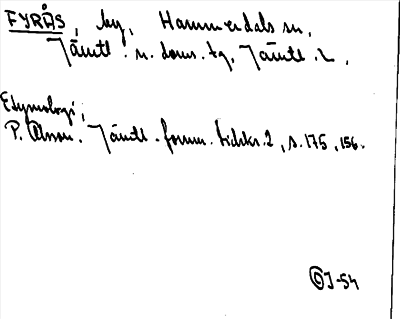 FYRÅS, by, Hammerdals sn,
Jämtl. n. doms. tg, Jämtl. L.
Etymologi;
P. Olsson. Jämtl. fornm. tidskr. 2, s. 175, 156.
J-54